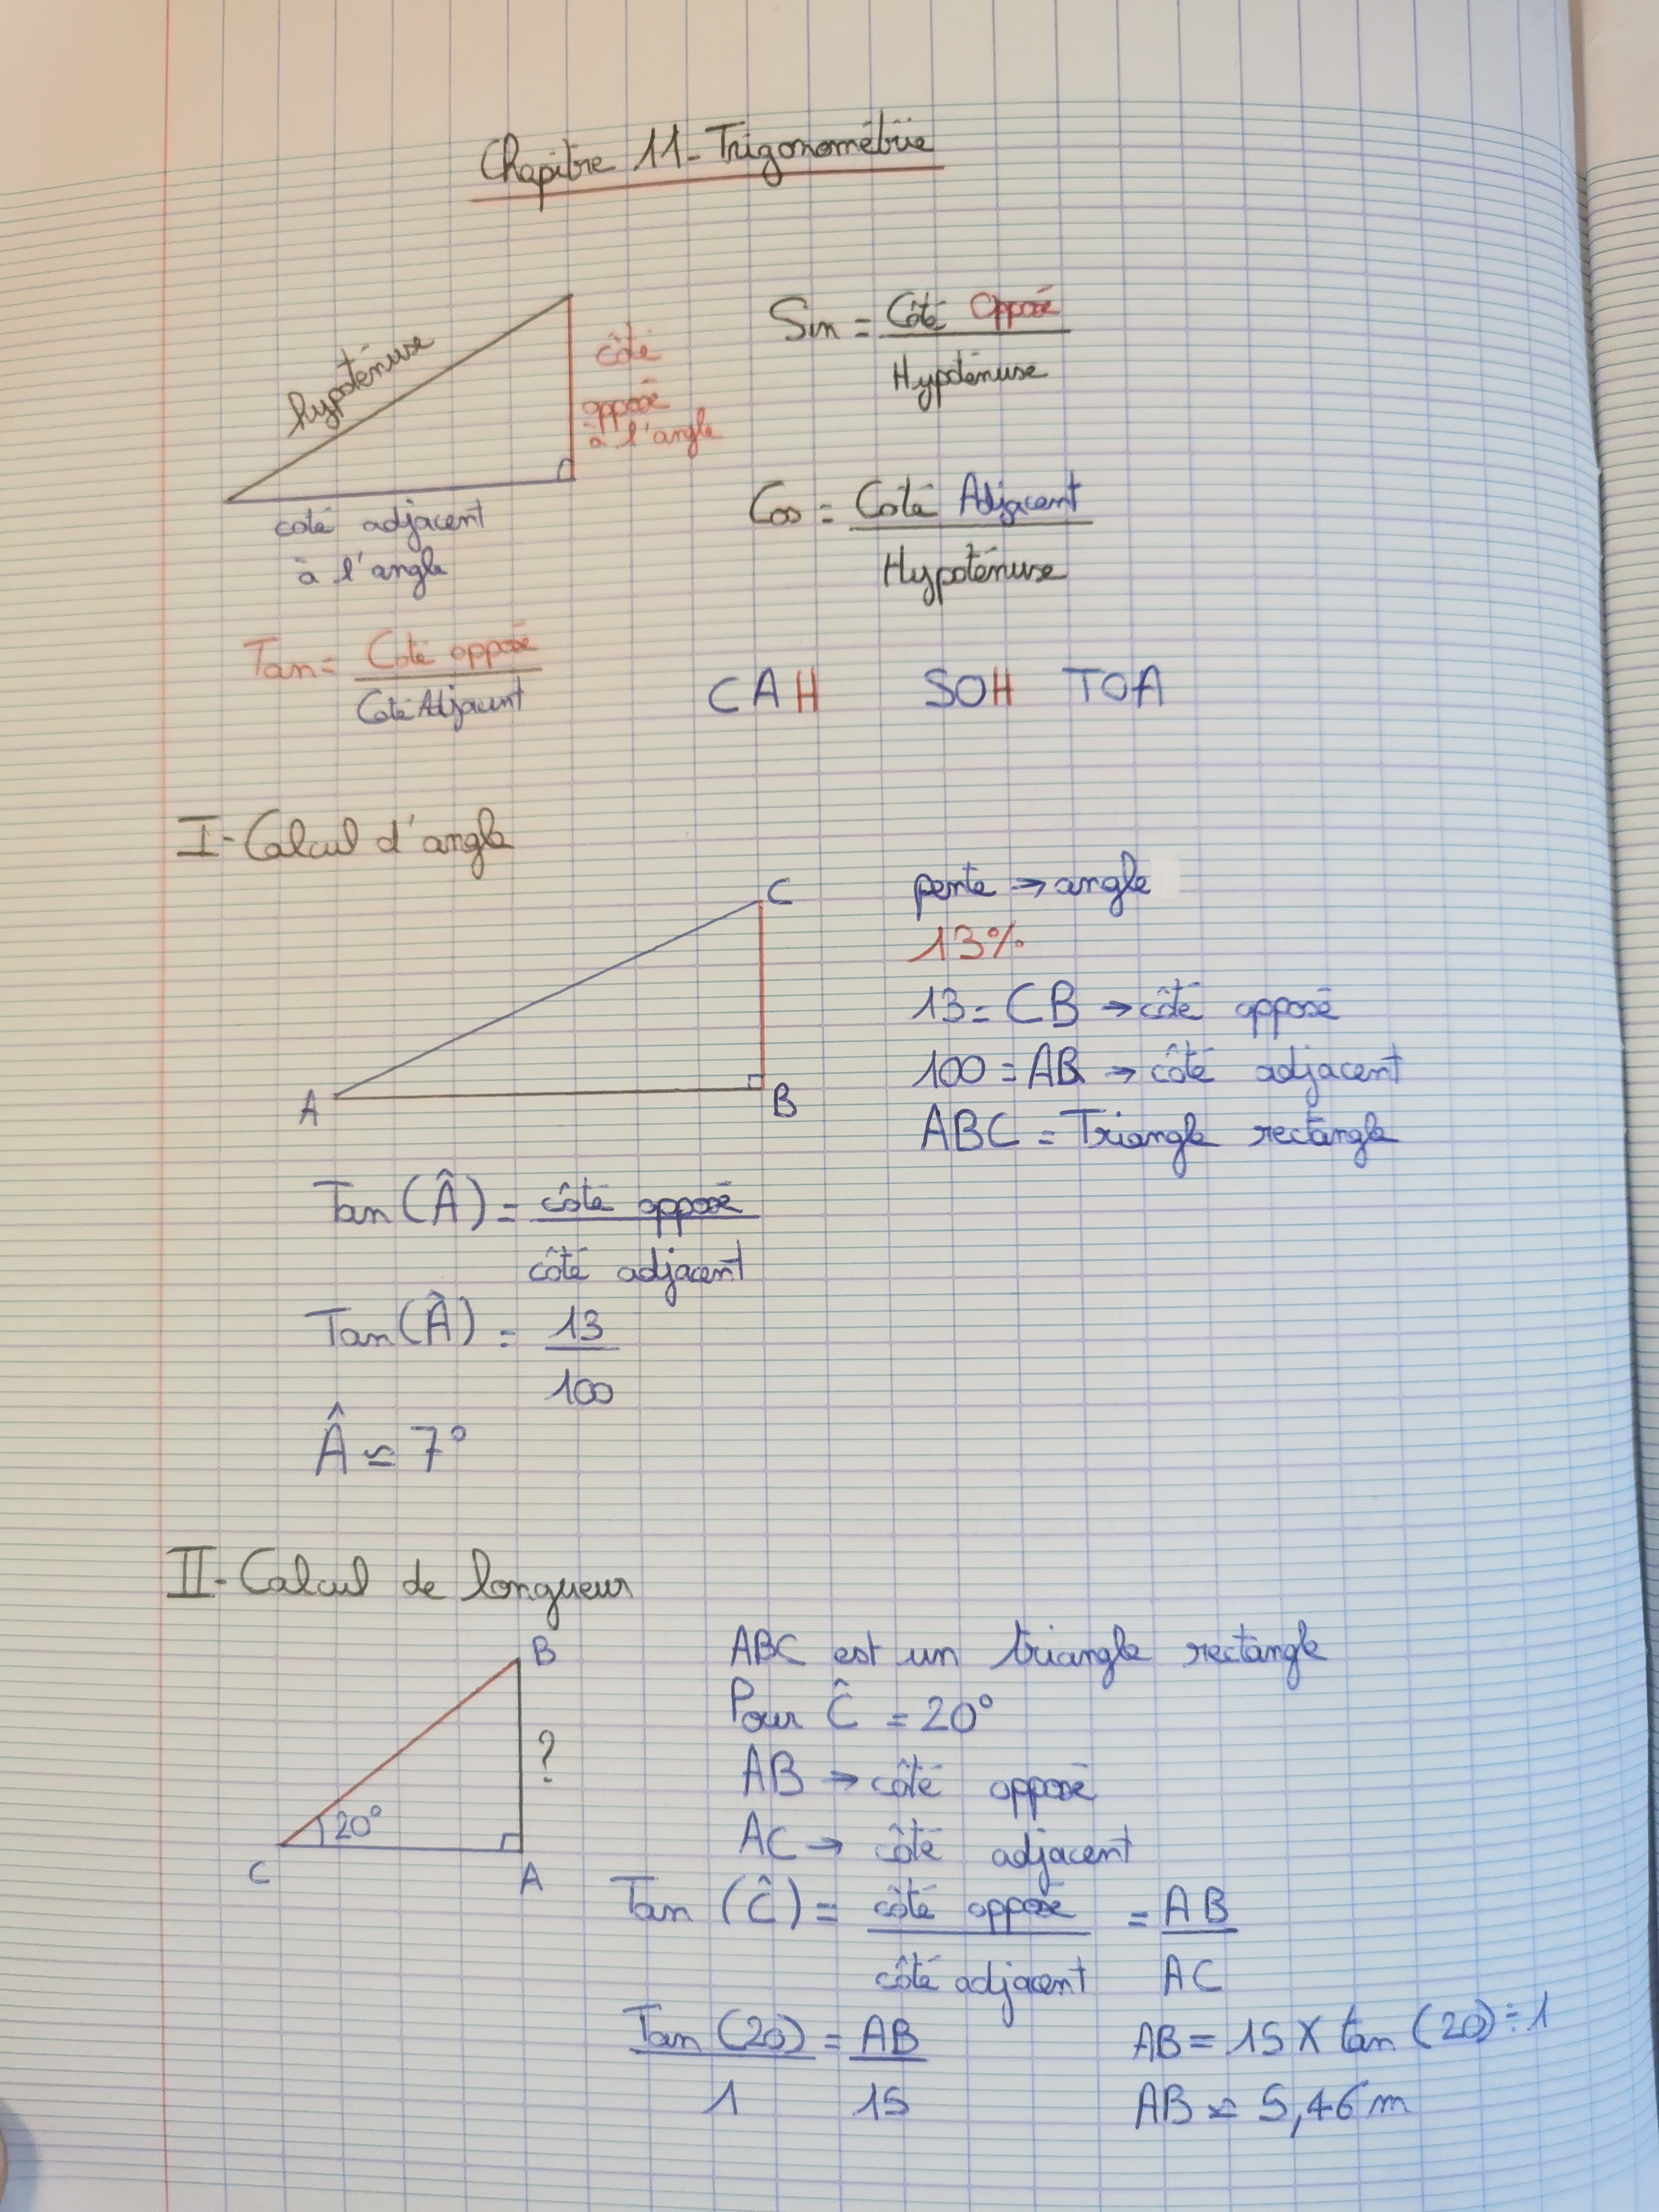 Chapitre 11 - Trigonométrie
hypoténuse
côté
opposé
à l'angle
coté adjacent
à l'angle
Sin = Côté Opposé
Hypoténuse
Cos = Coté Adjacent
Hypoténuse
Tan = Coté opposé
Coté Adjacent
CAH SOH TOA
I - Calcul d'angle
C
A
B
pente → angle
13%
13 = CB → côté opposé
100 = AB → côté adjacent
ABC = Triangle rectangle
Tan(Â) = côté opposé
côté adjacent
Tan(Â) = 13
100
Â ≃ 7°
II - Calcul de longueur
B
?
20°
C
A
ABC est un triangle rectangle
Pour Ĉ = 20°
AB → côté opposé
AC → côté adjacent
Tan (Ĉ) = côté opposé = AB
côté adjacent AC
Tan (20) = AB
1 15
AB = 15 X tan (20) ÷ 1
AB ≃ 5,46 m